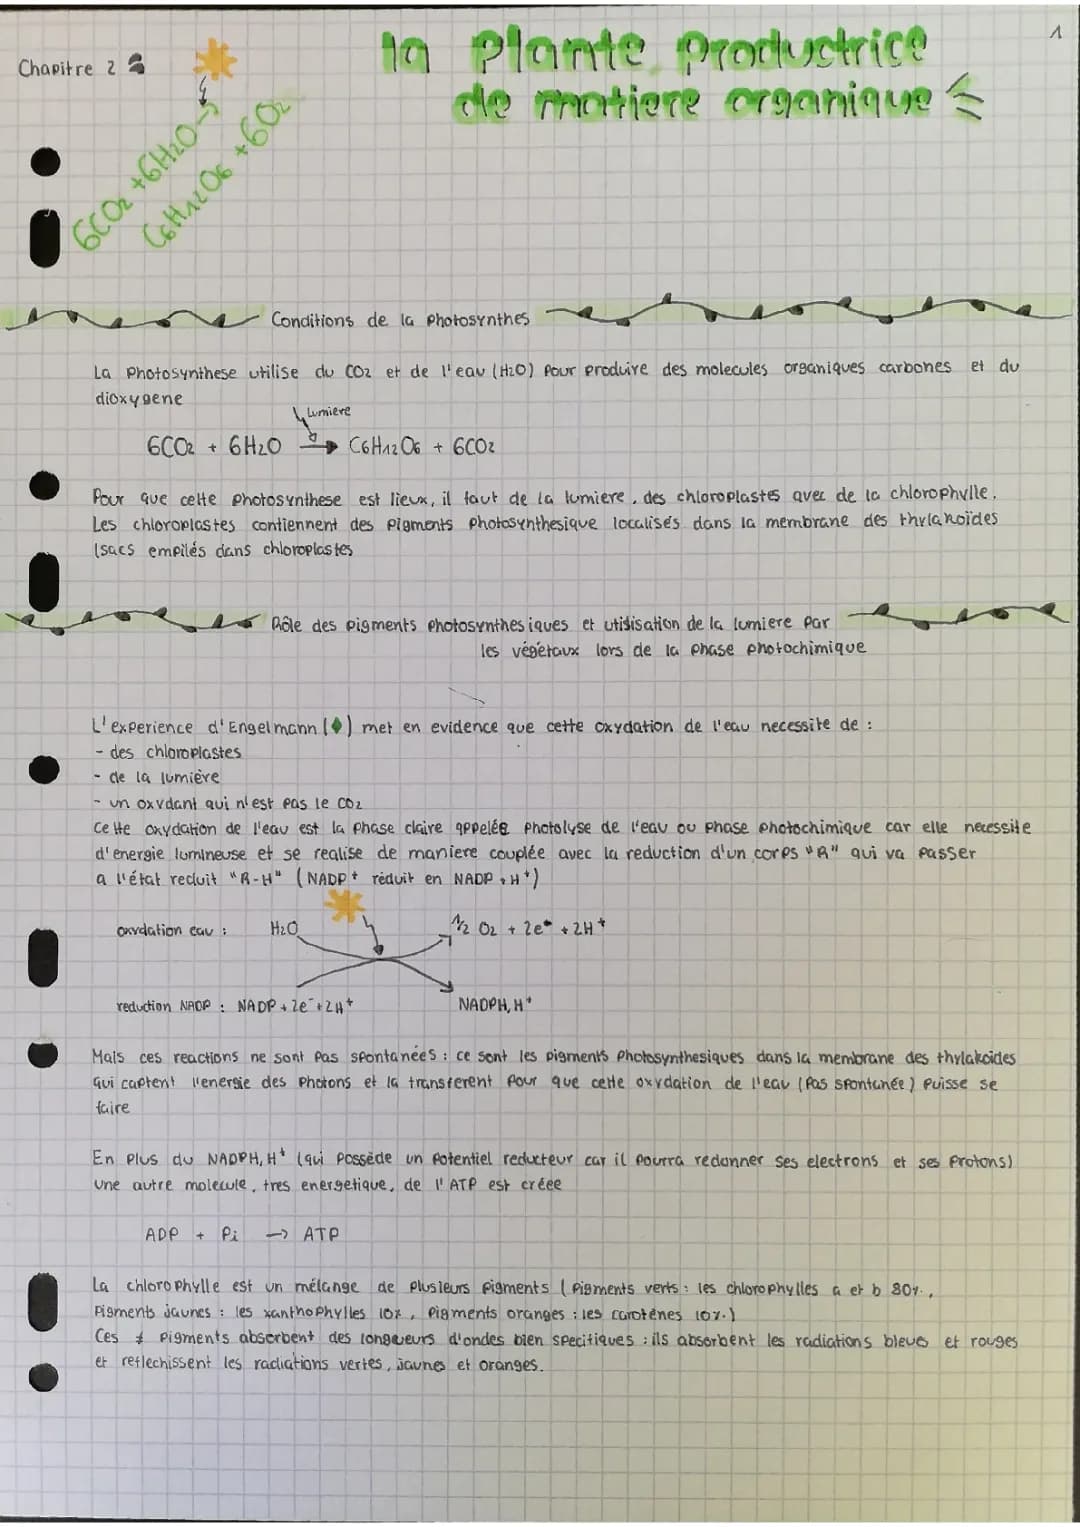 1
Chapitre 2
la Plante Productrice
de matiere organique
6CO2 + 6H2O →
C6H12O6 + 6O2
Conditions de la Photosynthes
La Photosynthese utilise du CO2 et de l'eau (H2O) Pour Produire des molecules organiques carbones et du
dioxygene
Lumiere
6CO2 + 6H2O → C6H12O6 + 6CO2
Pour que cette Photosynthese est lieux, il faut de la lumiere, des chloroplastes avec de la chlorophylle.
Les chloroplastes contiennent des Pigments Photosynthesique localisés dans la membrane des thylanoïdes
(sacs empilés dans chloroplastes
Rôle des Pigments Photosynthesiques et utisisation de la lumiere Par
les végétaux lors de la Phase Photochimique
L'experience d'Engelmann (♦) met en evidence que cette oxydation de l'eau necessite de :
- des chloroplastes
- de la lumière
- un oxydant qui n'est Pas le CO2
Cette oxydation de l'eau est la Phase claire appelée Photolyse de l'eau ou Phase Photochimique car elle necessite
d'energie lumineuse et se realise de maniere couplée avec la reduction d'un corps "R" qui va Passer
a l'état reduit "R-H" (NADP+ réduit en NADP + H+)
oxydation eau : H2O 1/2 O2 + 2e- + 2H+
reduction NADP : NADP + 2e- + 2H+ NADPH, H+
Mais ces reactions ne sont Pas spontanées : ce sont les Pigments Photosynthesiques dans la membrane des thylakoides
qui captent l'energie des Photons et la transferent Pour que cette oxydation de l'eau (Pas spontanée) Puisse se
faire
En Plus du NADPH, H+ (qui Possède un Potentiel reducteur car il Pourra redonner ses electrons et ses Protons)
une autre molecule, tres energetique, de l'ATP est créee
ADP + Pi → ATP
La chlorophylle est un mélange de Plusieurs Pigments (Pigments verts : les chlorophylles a et b 80%,
Pigments jaunes : les xanthophylles 10%, Pigments oranges : les carotènes 10%)
Ces ≠ Pigments absorbent des longueurs d'ondes bien specifiques : ils absorbent les radiations bleues et rouges
et reflechissent les radiations vertes, jaunes et oranges.